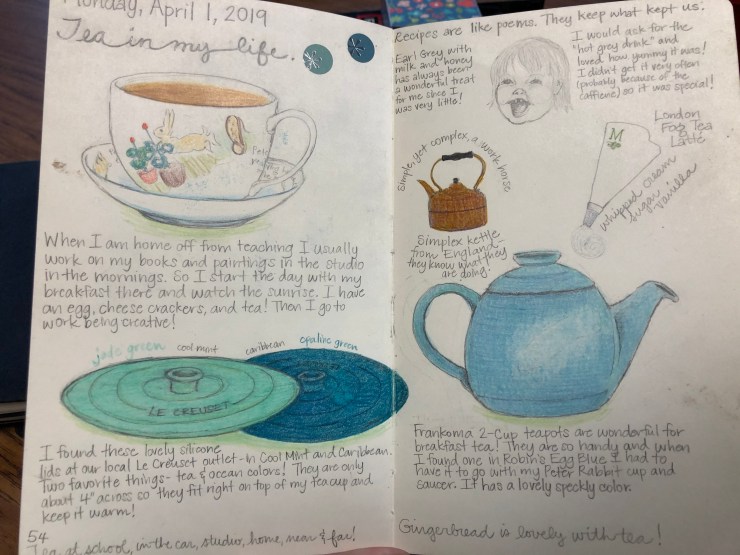 Monday, April 1, 2019
Tea in my life.
When I am home off from teaching I usually
work on my books and paintings in the studio
in the mornings. So I start the day with my
breakfast there and watch the sunrise. I have
an egg, cheese crackers, and tea! Then I go to
work being creative!
jade green
cool mint
caribbean
opaline green
LE CREUSET
I found these lovely silicone
lids at our local Le Creuset outlet-in Cool Mint and Caribbean.
Two favorite things- tea & ocean colors! They are only
about 4" across so they fit right on top of my teacup and
keep it warm!
54
Tea at school, in the car, studio, home, near & far!
Recipes are like poems. They keep what kept us.
Earl Grey with
milk and honey
has always been
a wonderful treat
for me since I
was very little!
I would ask for the
"hot grey drink" and
loved how yummy it was!
I didn't get it very often
(probably because of the
caffiene) so it was special!
London
Fog Tea
Latte
M
whipped cream
sugar
vanilla
Simple, yet complex, a work horse
Simplex kettle
from England-
they know what they
are doing!
Frankoma 2-Cup teapots are wonderful for
breakfast tea! They are so handy and when
I found one in Robin's Egg Blue I had to
have it to go with my Peter Rabbit cup and
saucer. It has a lovely speckly color.
Gingerbread is lovely with tea!